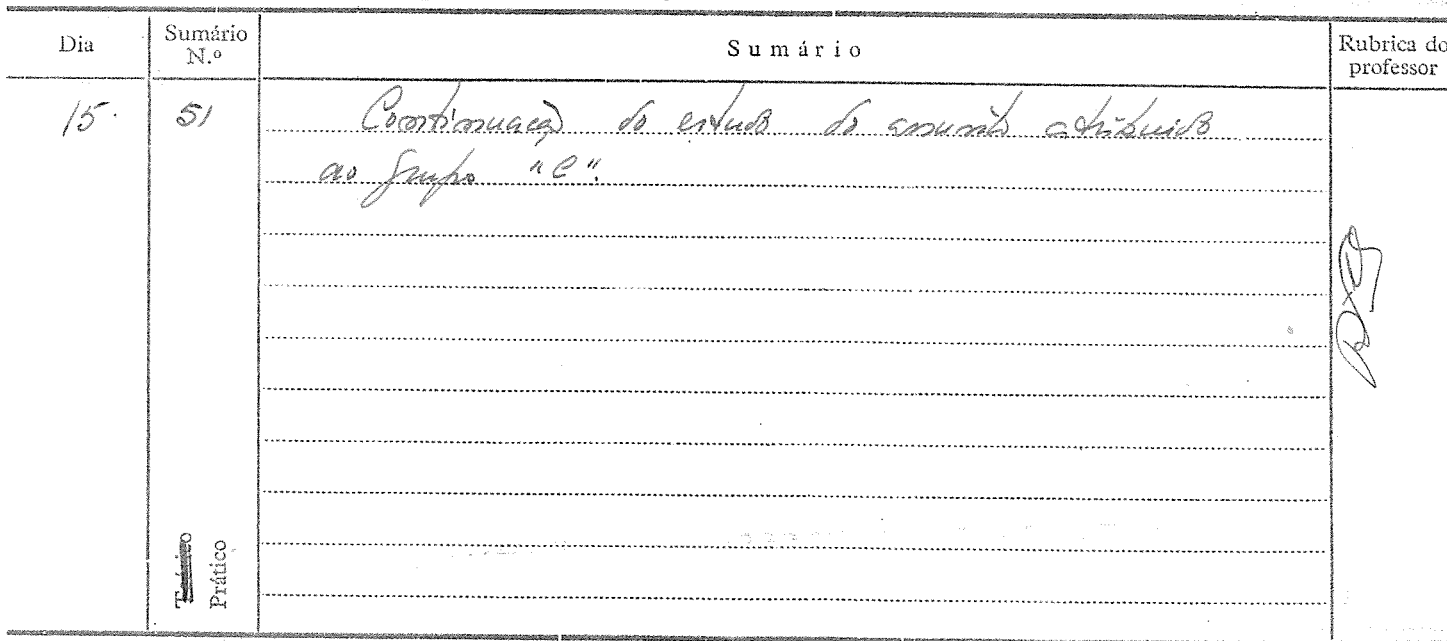 Dia
Sumário N.º
Sumário
Rubrica do professor
15.
51
Continuação do estudo do assunto atribuido
ao grupo "C".
Teórico
Prático